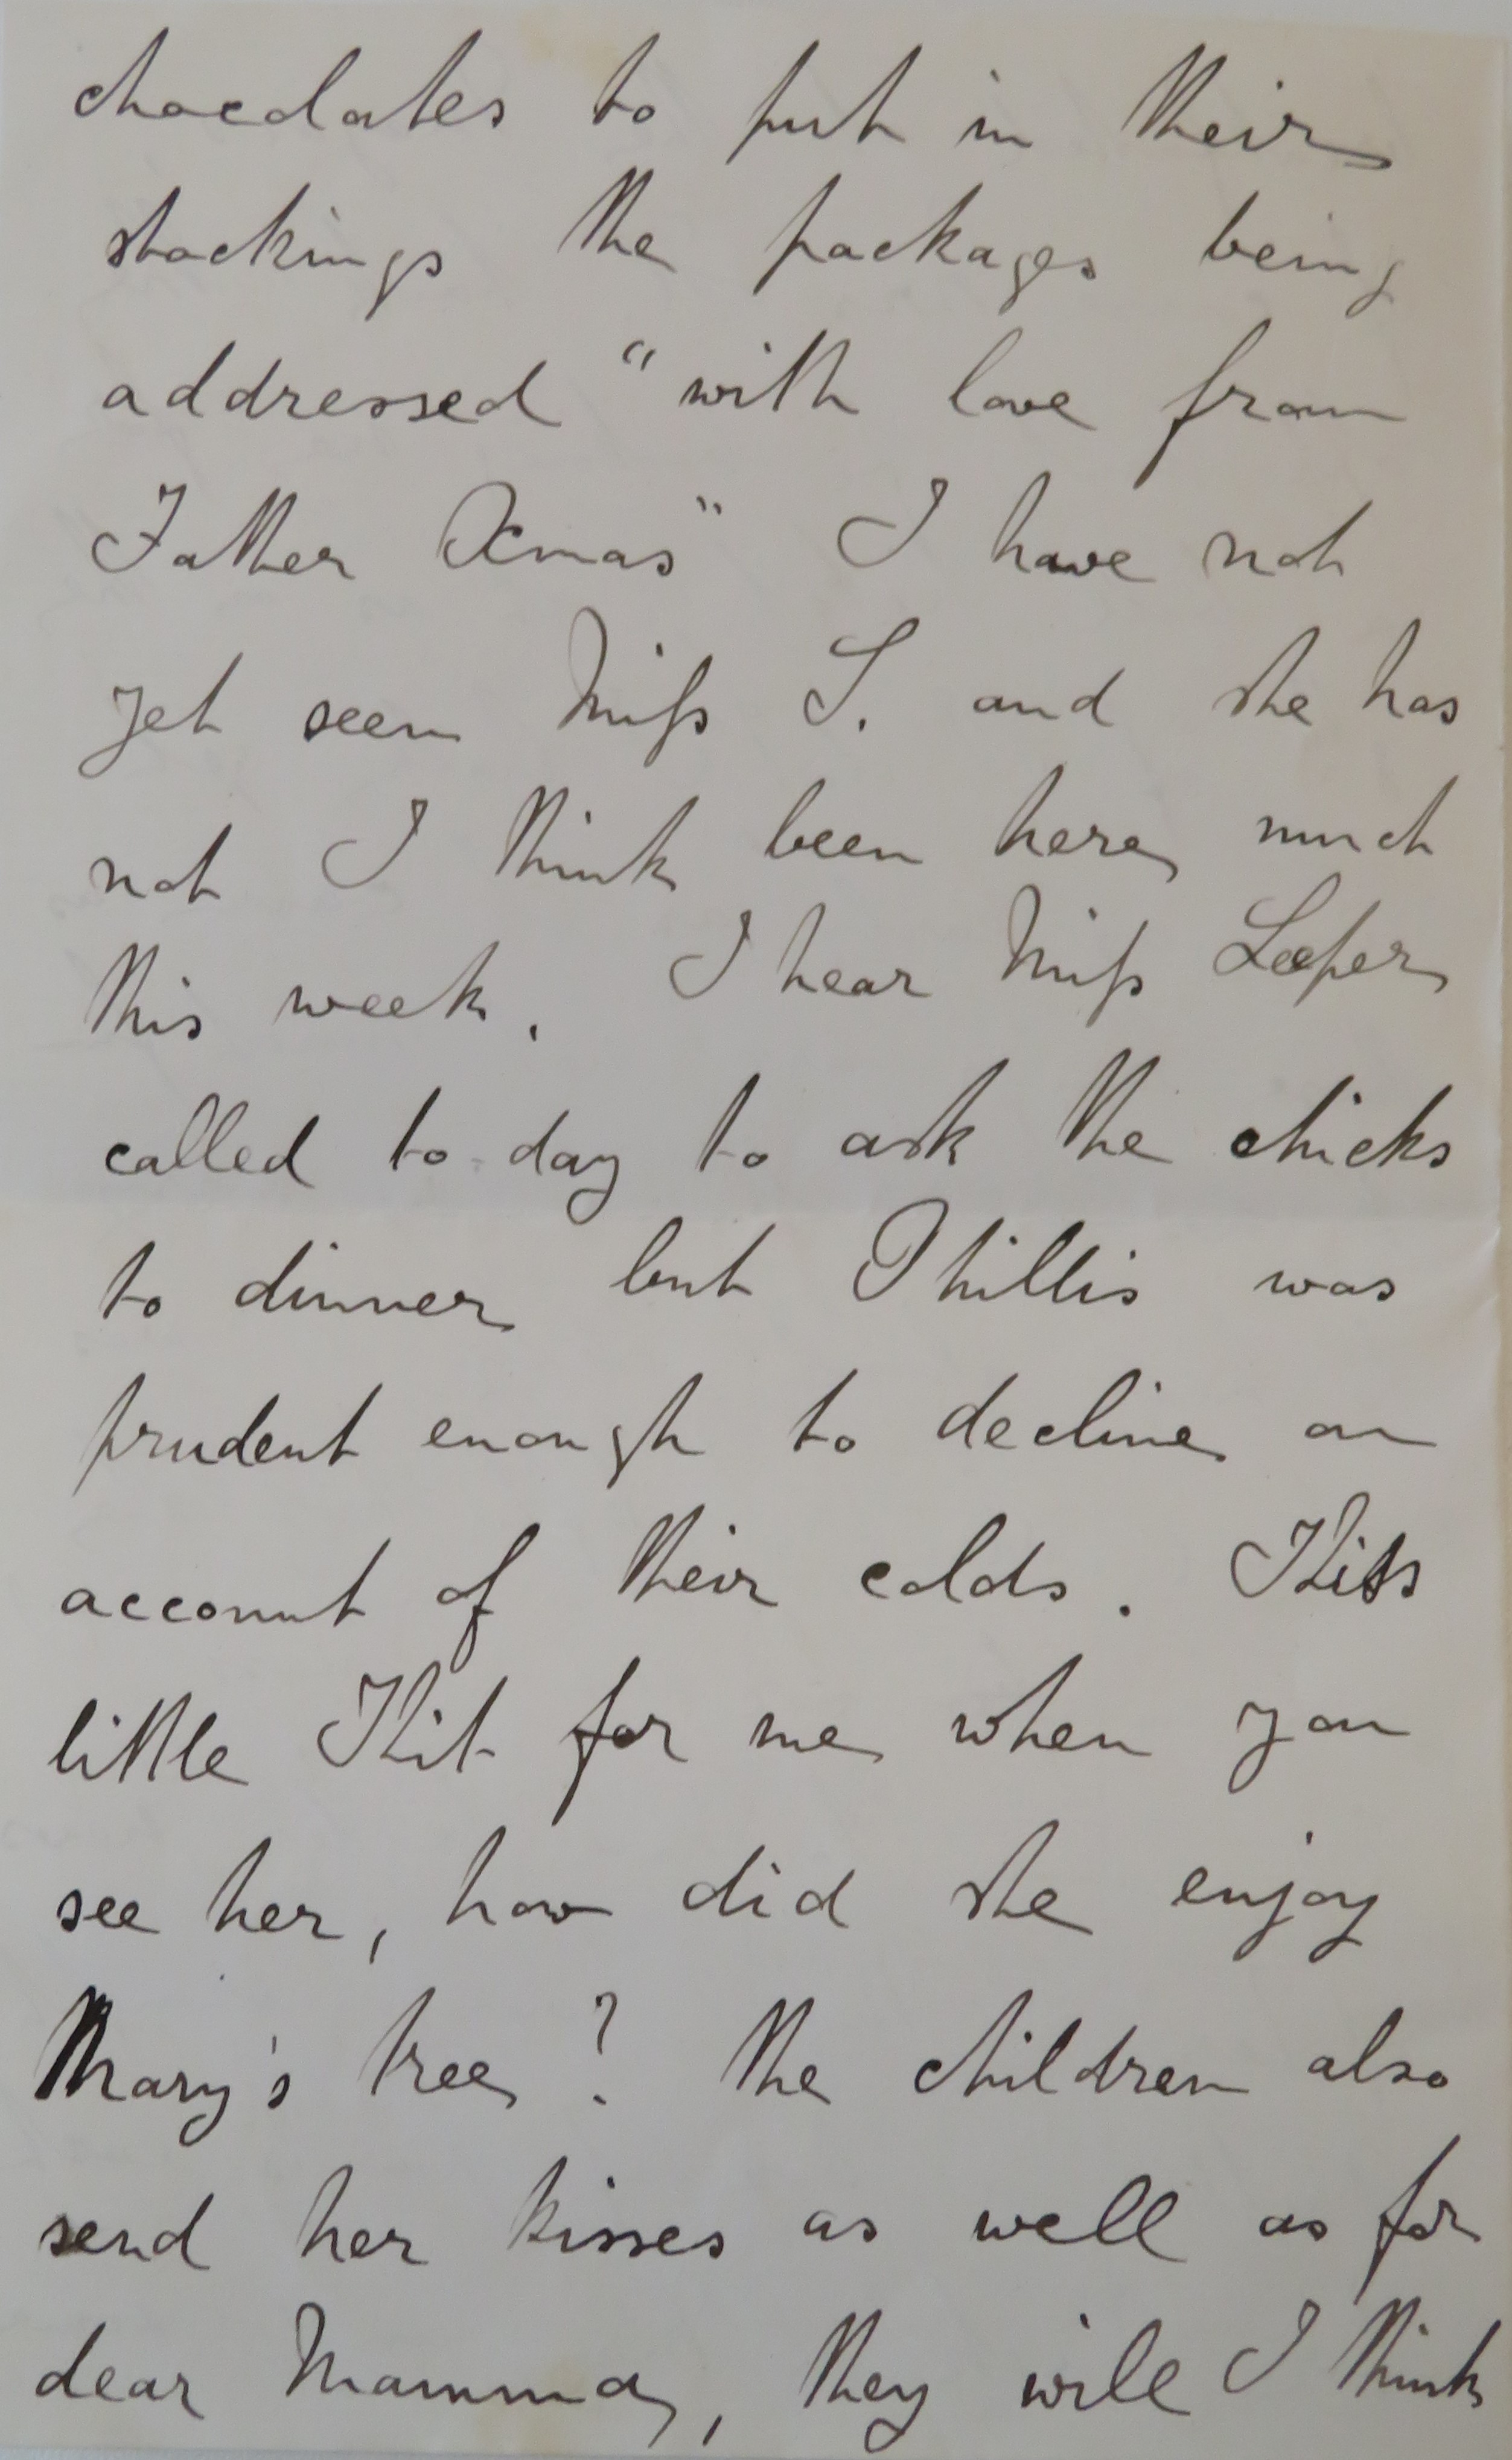 chocolates to put in their
stockings the packages being
addressed "with love from
Father Xmas" I have not
yet seen Miss S. and she has
not I think been here much
this week. I hear Miss Leeper
called to-day to ask the chicks
to dinner but Phillis was
prudent enough to decline on
account of their colds. Kiss
little Kit for me when you
see her, how did she enjoy
Mary's tree? The children also
send her kisses as well as for
dear Mamma, they will I think